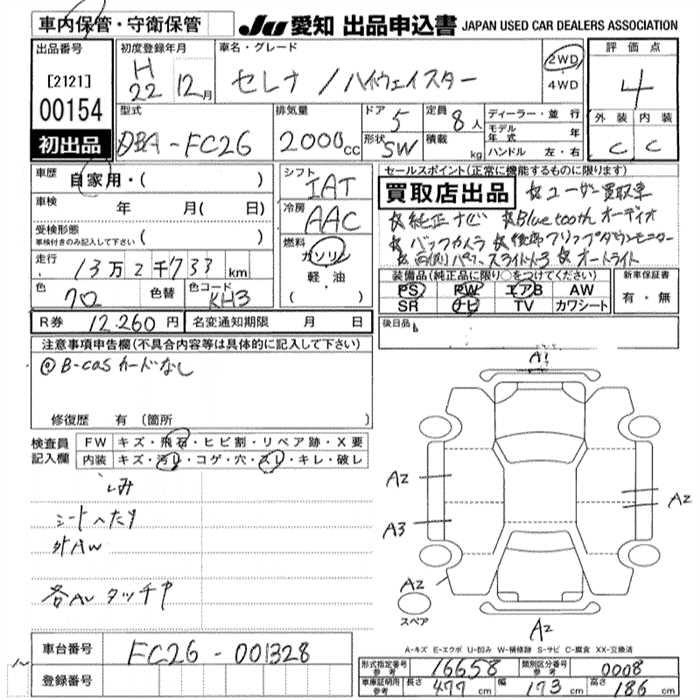 車内保管・守衛保管
JU 愛知 出品申込書 JAPAN USED CAR DEALERS ASSOCIATION
出品番号
[2121]
00154
初出品
初度登録年月
H
22 12月
車名・グレード
セレナ / ハイウェイスター
2WD
4WD
評価点
4
外装 内装
C C
型式
DBA-FC26
排気量
2000cc
ドア 5
形状 SW
定員 8人
積載 kg
ディーラー・並行
モデル年式 年
ハンドル 左・右
車歴
自家用・( )
車検 年 月( 日)
受検形態
車検付きのみ記入して下さい ( )
走行 13万2千733km
色 クロ 色替 色コード KH3
シフト IAT
冷房 AAC
燃料
ガソリン
軽・油
( )
セールスポイント(正常に機能するものに限ります)
買取店出品 ☆ユーザー買取車
☆純正ナビ ☆Bluetoothオーディオ
☆バックカメラ ☆後席フリップダウンモニター
☆両側パワースライドドア ☆オートライト
装備品(純正品に限り○をつけてください)
PS PW エアB AW
SR ナビ TV カワシート
新車保証書
有・無
R券 12,260円 名変通知期限 月 日
後日品
注意事項申告欄(不具合内容等は具体的に記入して下さい)
◎B-casカードなし
修復歴 有 (箇所
検査員記入欄
FW キズ・飛石・ヒビ割・リペア跡・X要
内装 キズ・汚レ・コゲ・穴・スレ・キレ・破レ
シミ
シートへたり
外AW
各AWタッチ中
A1
A2
A3
A2
A2
A2
スペア
A-キズ E-エクボ U-凹み W-補修跡 S-サビ C-腐食 XX-交換済
車台番号 FC26-001328
登録番号
形式指定番号 参考 16658 類別区分番号 参考 0008
車庫証明用 参考 長さ 477cm 幅 173cm 高さ 186cm